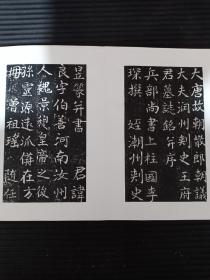 大唐故朝散郎朝議
大夫润州刺史王府
君墓誌銘并序
兵部尚書上柱國李
琛撰 姪潮州刺史
昱篆并書 君諱
良字伯善河南汝州
人魏景穆皇帝之後
孫靈源遠派備在方
冊曾祖瑤 隨任